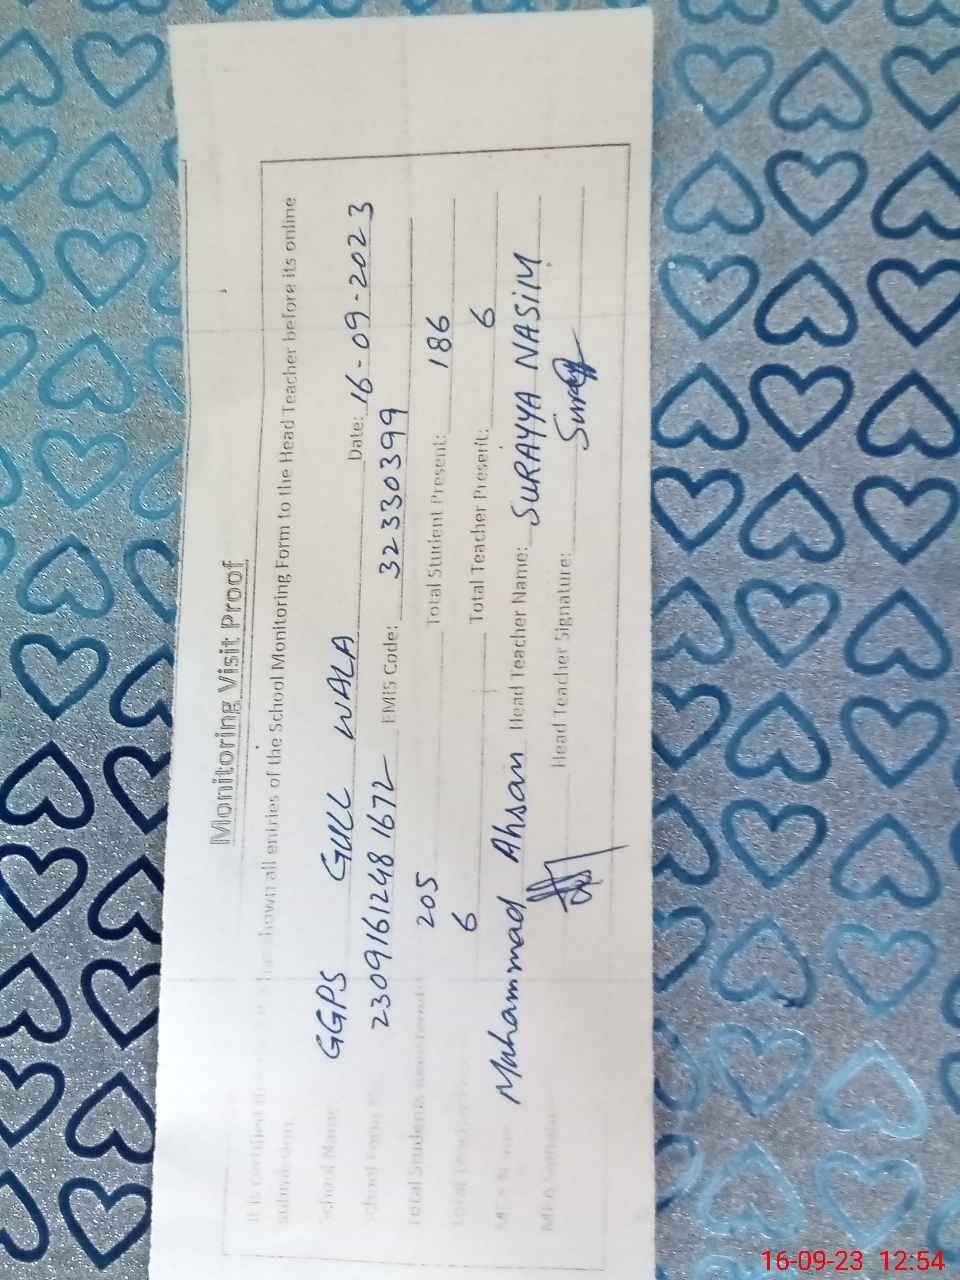 Monitoring Visit Proof
It is certified shown all entries of the School Monitoring Form to the Head Teacher before its online
submission.
School Name: GGPS GULL WALA Date: 16-09-2023
School Form 230916124816 72 EMIS Code: 32330399
Total Students 205 Total Student Present: 186
Total 6 Total Teacher Present: 6
MEA Name Muhammad Ahsan Head Teacher Name: SURAYYA NASIM
MEA Head Teacher Signature:
16-09-23 12:54